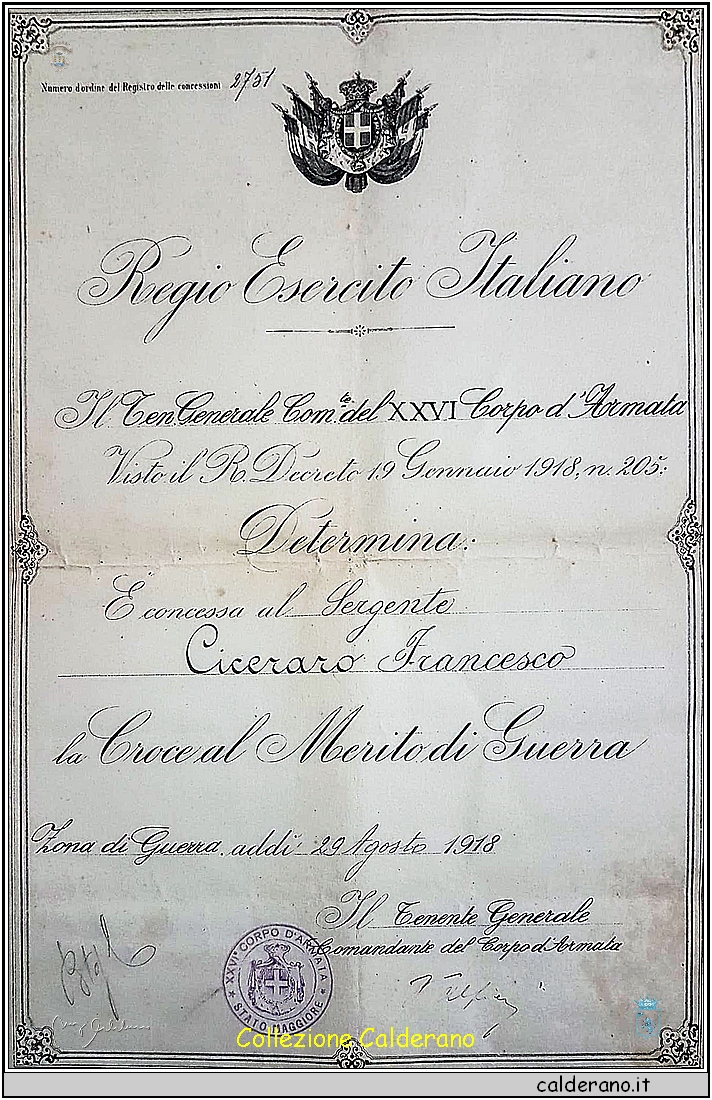 Numero d'ordine del Registro delle concessioni 2751
Regio Esercito Italiano
Il Ten. Generale Com.te del XXVI Corpo d'Armata
Visto il R. Decreto 19 Gennaio 1918, n. 205:
Determina:
È concessa al Sergente
Ciceraro Francesco
la Croce al Merito di Guerra
Zona di Guerra, addì 29 Agosto 1918
Il Tenente Generale
Comandante del Corpo d'Armata
XXVI° CORPO D'ARMATA
STATO MAGGIORE
Collezione Calderano
calderano.it